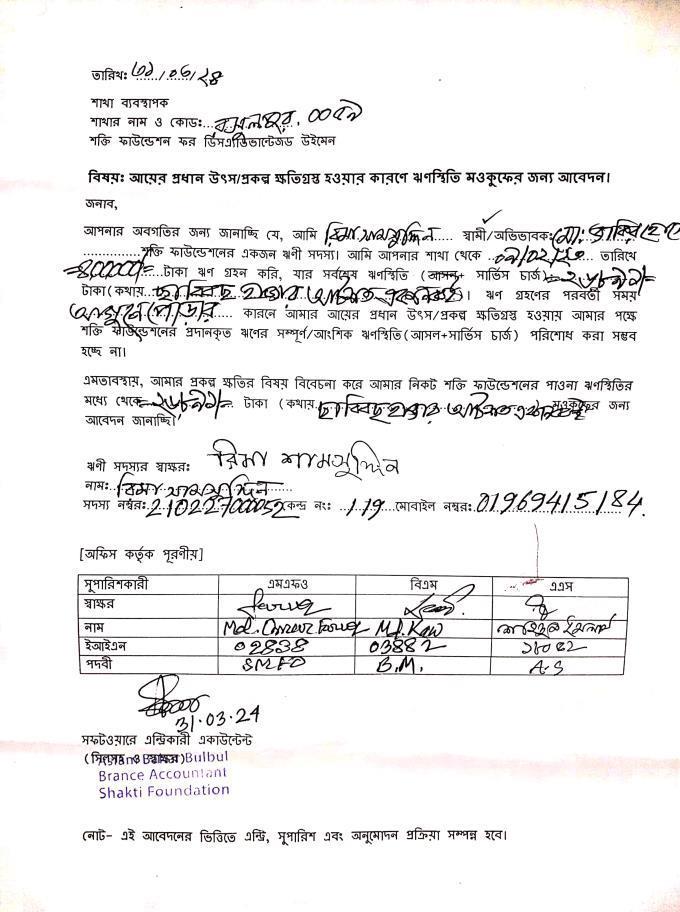 তারিখঃ ৩১/০৩/২৪
শাখা ব্যবস্থাপক
শাখার নাম ও কোডঃ ০০৫৯
শক্তি ফাউন্ডেশন ফর ডিসএ্যাডভান্টেজড উইমেন
বিষয়ঃ আয়ের প্রধান উৎস/প্রকল্প ক্ষতিগ্রস্ত হওয়ার কারণে ঋণস্থিতি মওকুফের জন্য আবেদন।
জনাব,
আপনার অবগতির জন্য জানাচ্ছি যে, আমি রিমা সামসুদ্দিন স্বামী/অভিভাবকঃ মোঃ
শক্তি ফাউন্ডেশনের একজন ঋণী সদস্য। আমি আপনার শাখা থেকে তারিখে
টাকা ঋণ গ্রহন করি, যার সর্বশেষ ঋণস্থিতি (আসল+ সার্ভিস চার্জ) =২৬৮৯১/=
টাকা(কথায় ছাব্বিশ হাজার আটশত একানব্বই)। ঋণ গ্রহণের পরবর্তী সময়
আগুনে পোড়ার কারনে আমার আয়ের প্রধান উৎস/প্রকল্প ক্ষতিগ্রস্ত হওয়ায় আমার পক্ষে
শক্তি ফাউন্ডেশনের প্রদানকৃত ঋণের সম্পূর্ণ/আংশিক ঋণস্থিতি(আসল+সার্ভিস চার্জ) পরিশোধ করা সম্ভব
হচ্ছে না।
এমতাবস্থায়, আমার প্রকল্প ক্ষতির বিষয় বিবেচনা করে আমার নিকট শক্তি ফাউন্ডেশনের পাওনা ঋণস্থিতির
মধ্যে থেকে =২৬৮৯১/= টাকা (কথায় ছাব্বিশ হাজার আটশত একানব্বই) মওকুফের জন্য
আবেদন জানাচ্ছি।
ঋণী সদস্যর স্বাক্ষরঃ রিমা শামসুদ্দিন
নামঃ রিমা সামসুদ্দিন
সদস্য নম্বরঃ 21022700052 কেন্দ্র নংঃ 119 মোবাইল নম্বরঃ 01969415184.
[অফিস কর্তৃক পূরণীয়]
সুপারিশকারী এমএফও বিএম এএস
স্বাক্ষর
নাম Md. Md. Kaw
ইআইএন 02838 03882
পদবী B.M. A.S
31.03.24
সফটওয়ারে এন্ট্রিকারী একাউন্টেন্ট
(সিলসহ ও স্বাক্ষর) Bulbul
Brance Accountant
Shakti Foundation
নোট- এই আবেদনের ভিত্তিতে এন্ট্রি, সুপারিশ এবং অনুমোদন প্রক্রিয়া সম্পন্ন হবে।